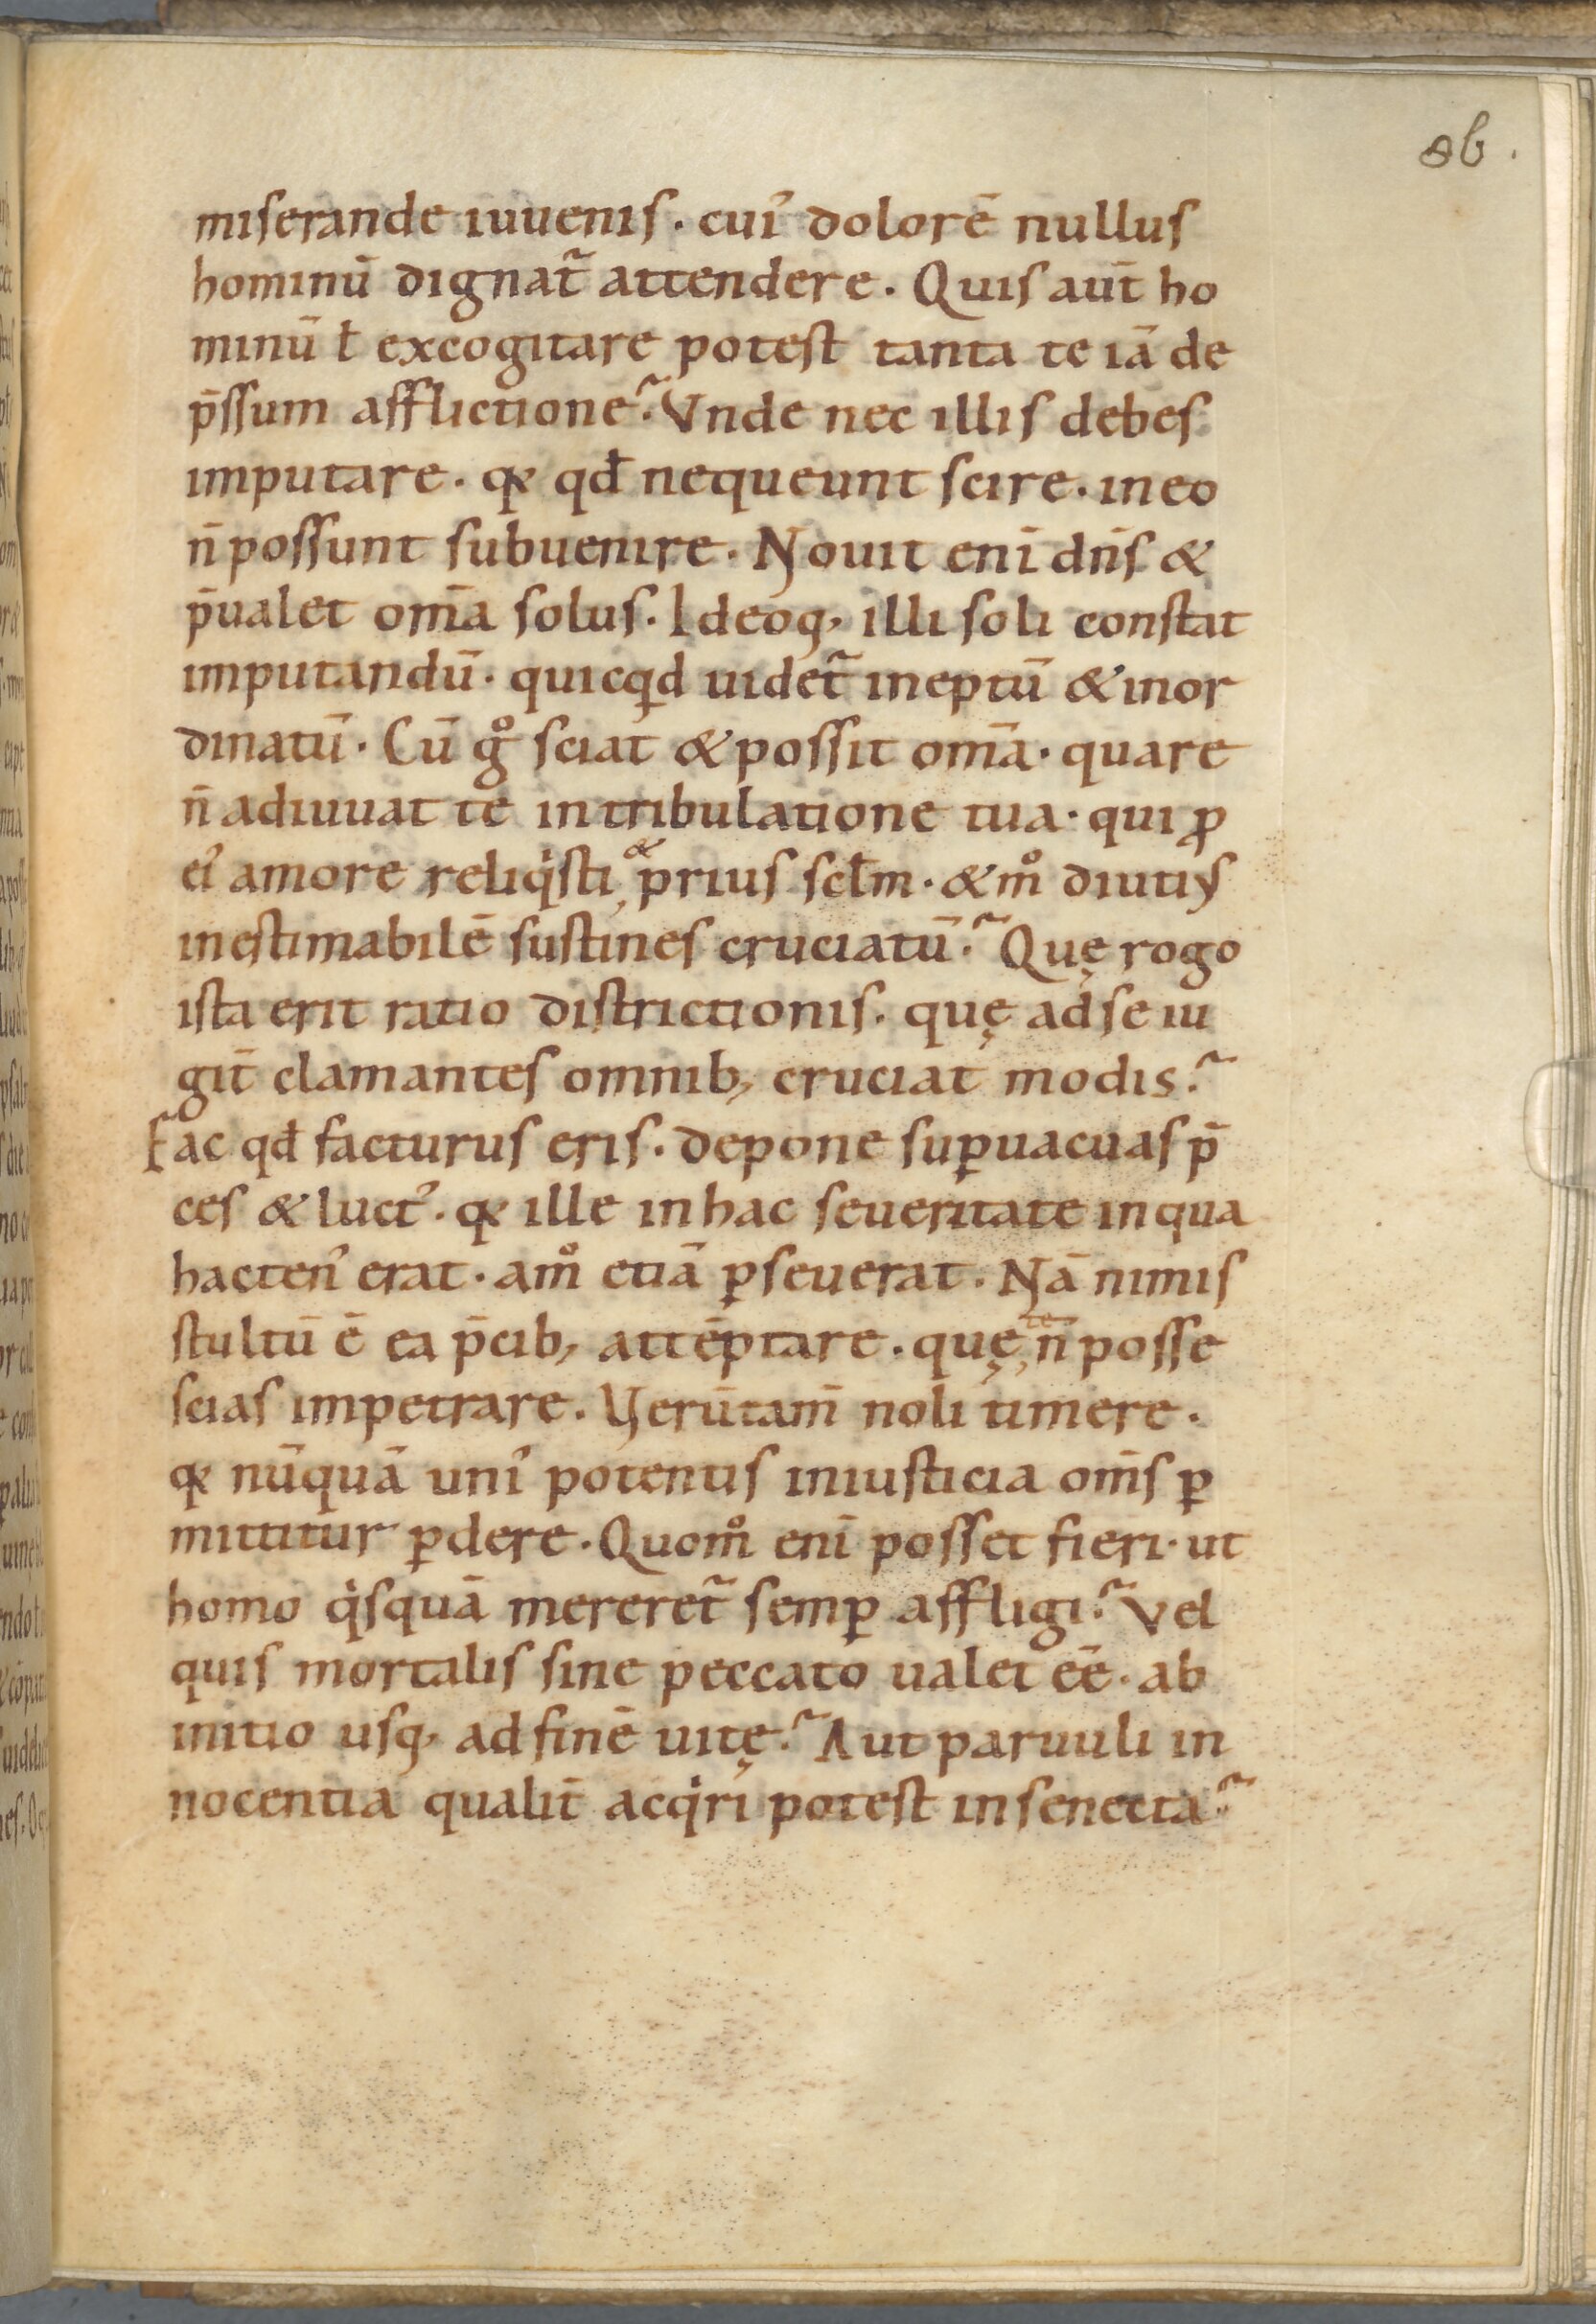 86.
miserande iuuenis. cui᾽ dolorē nullus
hominū dignat᷑ attendere. Quis aūt ho
minū ł excogitare potest tanta te iā de
p̄ssum afflictione? Vnde nec illis debes
imputare. qꝛ qđ nequeunt scire. in eo
n̄ possunt subuenire. Nouit enī dn̄s &
p̄ualet om̄a solus. Ideoq; illi soli constat
imputandū. quicqͥd uidet᷑ ineptū & inor
dinatū. Cū gͦ sciat & possit om̄a. quare
n̄ adiuuat te in tribulatione tua. qui ꝓ
ei᾽ amore reliqͥsti & prius scłm. & mͦ diuti᾽
inestimabilē sustines cruciatū? Quę rogo
ista erit ratio districtionis. quę ad se iu
git̄ clamantes omnib; cruciat modis?
Fac qđ facturus eris. depone suꝑuacuas p̄
ces & luct᾽. qꝛ ille in hac seueritate in qua
hacten᾽ erat. amͦ etiā ꝑseuerat. Nā nimis
stultū ē ea p̄cib; attēptare. quę te n̄ posse
scias impetrare. Verūtam̄ noli timere.
qꝛ nūquā uni᾽ potentis iniusticia om̄s ꝑ
mittitur ꝑdere. Quomͦ enī posset fieri. ut
homo qͥsquā mereret᷑ semꝑ affligi? Vel
quis mortalis sine peccato ualet eē. ab
initio usq; ad finē uitę? Aut paruuli in
nocentia qualit̄ acqͥri potest in senecta?